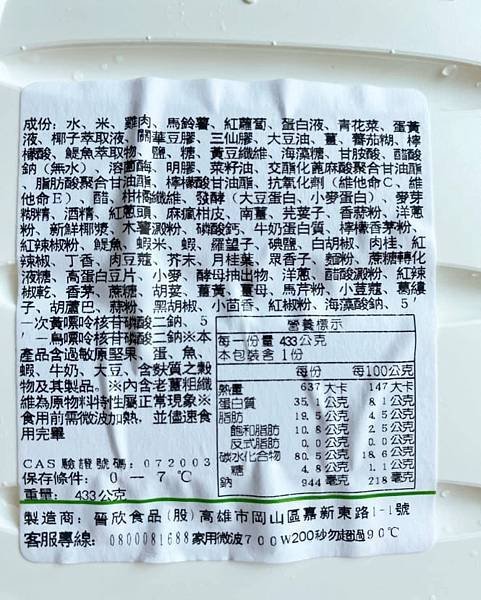 成份：水、米、雞肉、馬鈴薯、紅蘿蔔、蛋白液、青花菜、蛋黃
液、椰子萃取液、關華豆膠、三仙膠、大豆油、薑、蕃茄糊、檸
檬酸、鯷魚萃取物、鹽、糖、黃豆纖維、海藻糖、甘胺酸、醋酸
鈉（無水）、溶菌酶、明膠、菜籽油、交酯化蓖麻酸聚合甘油酯
、脂肪酸聚合甘油酯、檸檬酸甘油酯、抗氧化劑（維他命C、維
他命E）、醋、柑橘纖維、發酵（大豆蛋白、小麥蛋白）、麥芽
糊精、酒精、紅蔥頭、麻瘋柑皮、南薑、芫荽子、香蒜粉、洋蔥
粉、新鮮椰漿、木薯澱粉、磷酸鈣、牛奶蛋白質、檸檬香茅粉、
紅辣椒粉、鯷魚、蝦米、蝦、羅望子、碘鹽、白胡椒、肉桂、紅
辣椒、丁香、肉豆蔻、芥末、月桂葉、眾香子、麵粉、蔗糖轉化
液糖、高蛋白豆片、小麥、酵母抽出物、洋蔥、醋酸澱粉、紅辣
椒乾、香茅、蔗糖、胡荽、薑黃、薑母、馬芹粉、小荳蔻、葛縷
子、胡蘆巴、蒜粉、黑胡椒、小茴香、紅椒粉、海藻酸鈉、5'
－次黃嘌呤核苷磷酸二鈉、5
'－鳥嘌呤核苷磷酸二鈉※本
產品含過敏原堅果、蛋、魚、
蝦、牛奶、大豆、含麩質之穀
物及其製品。※內含老薑粗纖
維為原物料特性屬正常現象※
食用前需微波加熱，並儘速食
用完畢
營養標示
每一份量 433公克
本包裝含 1份
每份 每100公克
熱量 637大卡 147大卡
蛋白質 35.1公克 8.1公克
脂肪 19.5公克 4.5公克
飽和脂肪 10.8公克 2.5公克
反式脂肪 0.0公克 0.0公克
碳水化合物 80.5公克 18.6公克
糖 4.8公克 1.1公克
鈉 944毫克 218毫克
CAS驗證號碼：072003
保存條件：0－7℃
重量：433公克
製造商：晉欣食品(股)高雄市岡山區嘉新東路1-1號
客服專線：0800081688家用微波700W200秒勿超過90℃